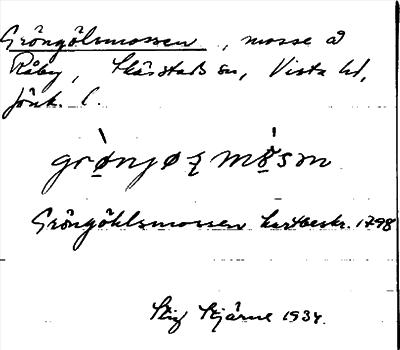 Gröngölsmossen, mosse å
Råby, Skärstads sn, Vista hd,
Jönk. l.
grònjøʒ mòsm
Gröngöhlsmossen kartbeskr. 1798
Stig Stjärne 1934.